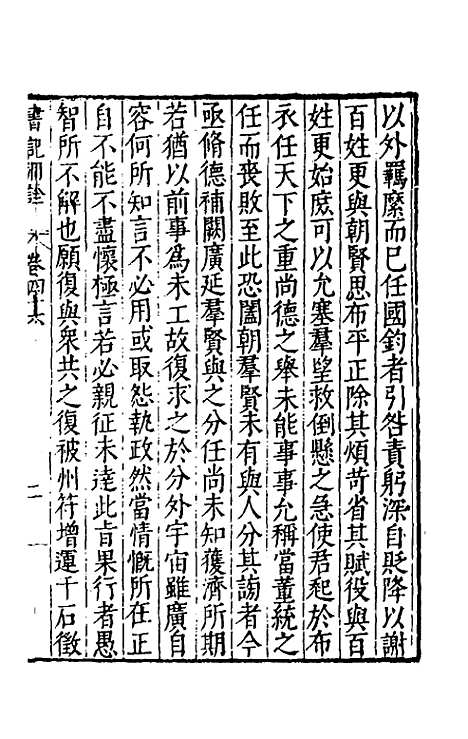 以外羈縻而已任國鈞者引咎責躬深自貶降以謝
百姓更與朝賢思布平正除其煩苛省其賦役與百
姓更始庶可以允塞羣望救倒懸之急使君起於布
衣任天下之重尚德之舉未能事事允稱當董統之
任而喪敗至此恐闔朝羣賢未有與人分其謗者今
亟脩德補闕廣延羣賢與之分任尚未知獲濟所期
若猶以前事為未工故復求之於分外宇宙雖廣自
容何所知言不必用或取怨執政然當情慨所在正
自不能不盡懷極言若必親征未達此旨果行者愚
智所不解也願復與衆共之復被州符增運千石徵
書記洞詮 卷四十六 二